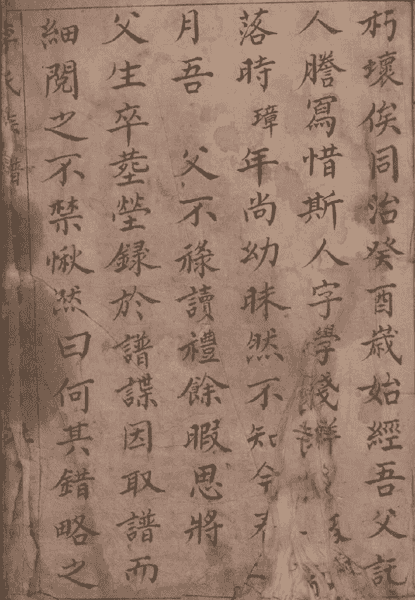 朽壞俟同治癸酉歲始經吾父託
人謄寫惜斯人字學淺
落時璋年尚幼昧然不知今
月吾 父不祿讀禮餘暇思將
父生卒塟塋録於譜諜因取譜而
細閱之不禁愀然曰何其錯略之
李氏 譜